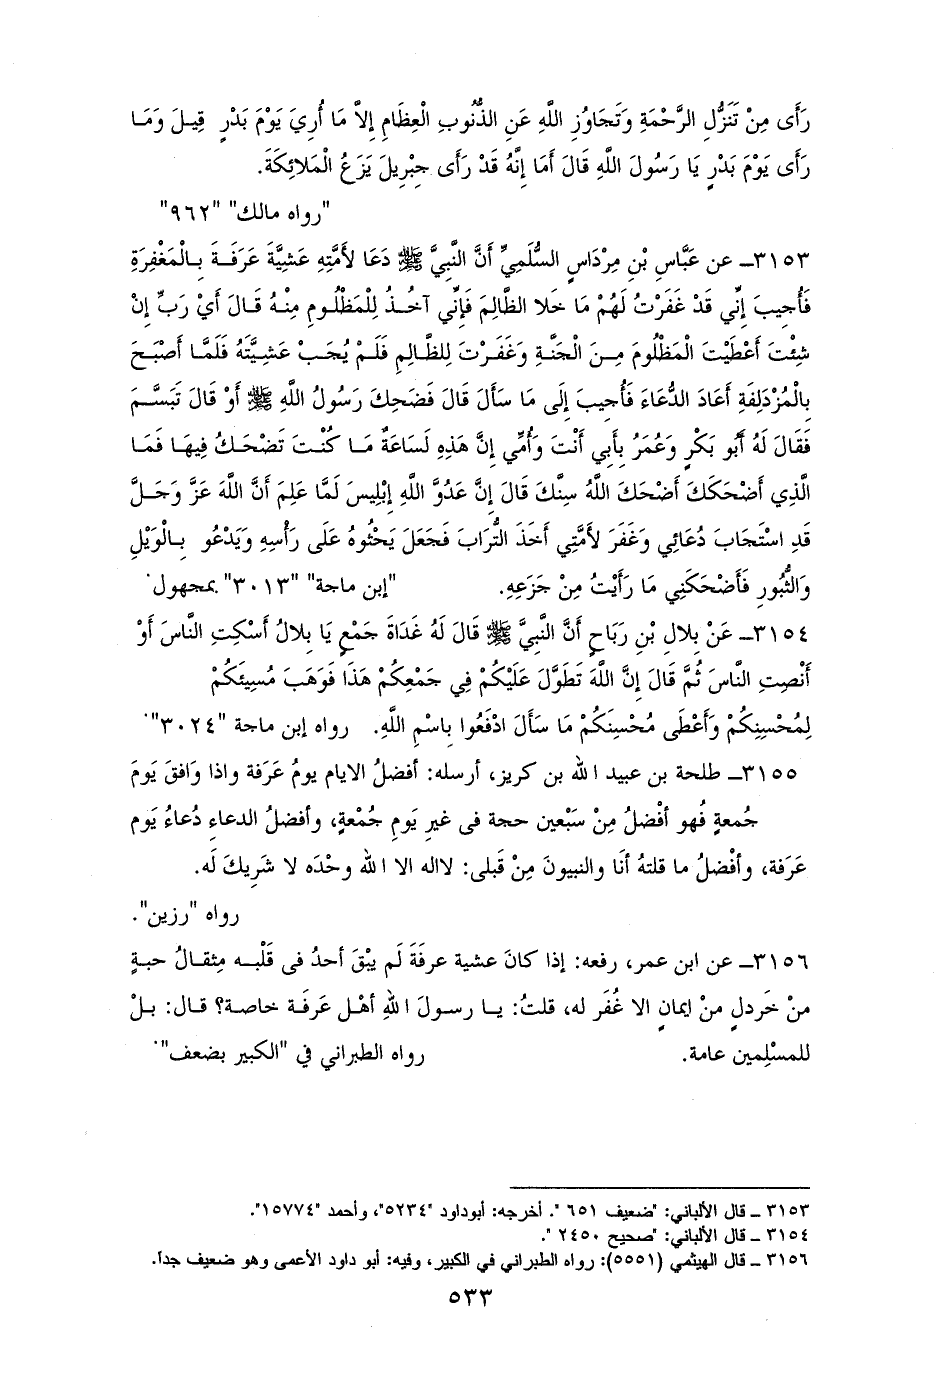 رَأَى مِنْ تَنَزُّلِ الرَّحْمَةِ وَتَجَاوُزِ اللَّهِ عَنِ الذُّنُوبِ الْعِظَامِ إِلاَّ مَا أُرِيَ يَوْمَ بَدْرٍ قِيلَ وَمَا
رَأَى يَوْمَ بَدْرٍ يَا رَسُولَ اللَّهِ قَالَ أَمَا إِنَّهُ قَدْ رَأَى جِبْرِيلَ يَزَعُ الْمَلائِكَةَ.
"رواه مالك" "٩٦٢"
٣١٥٣ـ عن عَبَّاسِ بْنِ مِرْدَاسٍ السُّلَمِيِّ أَنَّ النَّبِيَّ ﷺ دَعَا لأُمَّتِهِ عَشِيَّةَ عَرَفَةَ بِالْمَغْفِرَةِ
فَأُجِيبَ إِنِّي قَدْ غَفَرْتُ لَهُمْ مَا خَلا الظَّالِمَ فَإِنِّي آخُذُ لِلْمَظْلُومِ مِنْهُ قَالَ أَيْ رَبِّ إِنْ
شِئْتَ أَعْطَيْتَ الْمَظْلُومَ مِنَ الْجَنَّةِ وَغَفَرْتَ لِلظَّالِمِ فَلَمْ يُجَبْ عَشِيَّتَهُ فَلَمَّا أَصْبَحَ
بِالْمُزْدَلِفَةِ أَعَادَ الدُّعَاءَ فَأُجِيبَ إِلَى مَا سَأَلَ قَالَ فَضَحِكَ رَسُولُ اللَّهِ ﷺ أَوْ قَالَ تَبَسَّمَ
فَقَالَ لَهُ أَبُو بَكْرٍ وَعُمَرُ بِأَبِي أَنْتَ وَأُمِّي إِنَّ هَذِهِ لَسَاعَةٌ مَا كُنْتَ تَضْحَكُ فِيهَا فَمَا
الَّذِي أَضْحَكَكَ أَضْحَكَ اللَّهُ سِنَّكَ قَالَ إِنَّ عَدُوَّ اللَّهِ إِبْلِيسَ لَمَّا عَلِمَ أَنَّ اللَّهَ عَزَّ وَجَلَّ
قَدِ اسْتَجَابَ دُعَائِي وَغَفَرَ لأُمَّتِي أَخَذَ التُّرَابَ فَجَعَلَ يَحْثُوهُ عَلَى رَأْسِهِ وَيَدْعُو بِالْوَيْلِ
وَالثُّبُورِ فَأَضْحَكَنِي مَا رَأَيْتُ مِنْ جَزَعِهِ. "إبن ماجة" "٣٠١٣" بمجهول.
٣١٥٤ـ عَنْ بِلالِ بْنِ رَبَاحٍ أَنَّ النَّبِيَّ ﷺ قَالَ لَهُ غَدَاةَ جَمْعٍ يَا بِلالُ أَسْكِتِ النَّاسَ أَوْ
أَنْصِتِ النَّاسَ ثُمَّ قَالَ إِنَّ اللَّهَ تَطَوَّلَ عَلَيْكُمْ فِي جَمْعِكُمْ هَذَا فَوَهَبَ مُسِيئَكُمْ
لِمُحْسِنِكُمْ وَأَعْطَى مُحْسِنَكُمْ مَا سَأَلَ ادْفَعُوا بِاسْمِ اللَّهِ. رواه إبن ماجة "٣٠٢٤".
٣١٥٥ـ طلحة بن عبيد الله بن كريز، أرسله: أفضلُ الايام يومُ عَرفة واذا وَافقَ يَومَ
جُمعةٍ فُهو أفْضلُ مِنْ سَبْعين حجة فى غيرِ يَومِ جُمْعةٍ، وأفضلُ الدعاءِ دُعاءُ يَوم
عَرَفة، وأفْضلُ ما قلتهُ أنَا والنبيونَ مِنْ قَبلى: لااله الا الله وحْدَه لا شَرِيكَ لَه.
رواه "رزين".
٣١٥٦ـ عن ابن عمر، رفعه: إذا كانَ عشية عرفَةَ لَم يبْقَ أحدُ فى قَلْبه مِثقالُ حبةٍ
منْ خَردلٍ منْ ايمانٍ الا غُفَر له، قلتُ: يا رسولَ اللهِ أهْل عَرفَة خاصة؟ قال: بلْ
للمسْلِمين عامة. رواه الطبراني في "الكبير بضعف".
٣١٥٣ ـ قال الألباني: "ضعيف ٦٥١". أخرجه: أبوداود "٥٢٣٤"، وأحمد "١٥٧٧٤".
٣١٥٤ ـ قال الألباني: "صحيح ٢٤٥٠".
٣١٥٦ ـ قال الهيثمي (٥٥٥١): رواه الطبراني في الكبير، وفيه: أبو داود الأعمى وهو ضعيف جداً.
٥٣٣